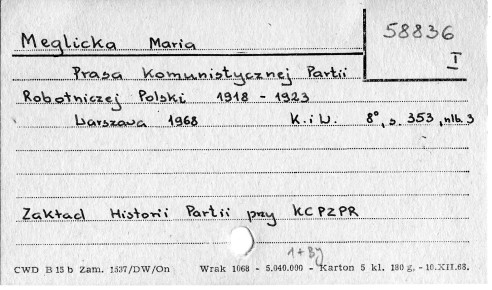 58836
I
Meglicka Maria
Prasa Komunistycznej Partii
Robotniczej Polski 1918 - 1923
Warszawa 1968 K. i W. 8°, s. 353, nlb. 3
Zakład Historii Partii przy KC PZPR
1 + By
CWD B 15 b Zam. 1537/DW/On Wrak 1068 - 5.040.000 - Karton 5 kl. 180 g. - 10.XII.68.